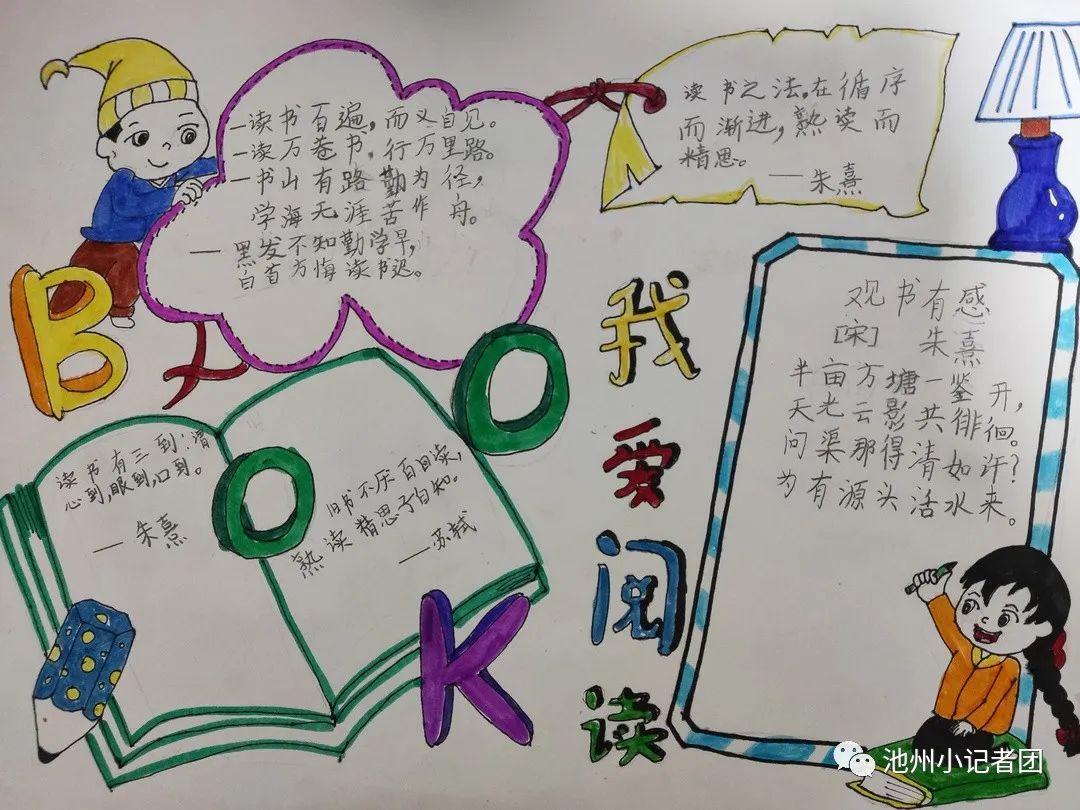 —读书百遍，而义自见。
—读万卷书，行万里路。
—书山有路勤为径，
学海无涯苦作舟。
—黑发不知勤学早，
白首方悔读书迟。
读书之法，在循序
而渐进，熟读而
精思。
——朱熹
BOOK
读书有三到：谓
心到，眼到，口到。
——朱熹
旧书不厌百回读，
熟读精思子自知。
——苏轼
我爱阅读
观书有感
[宋] 朱熹
半亩方塘一鉴开，
天光云影共徘徊。
问渠那得清如许？
为有源头活水来。
池州小记者团